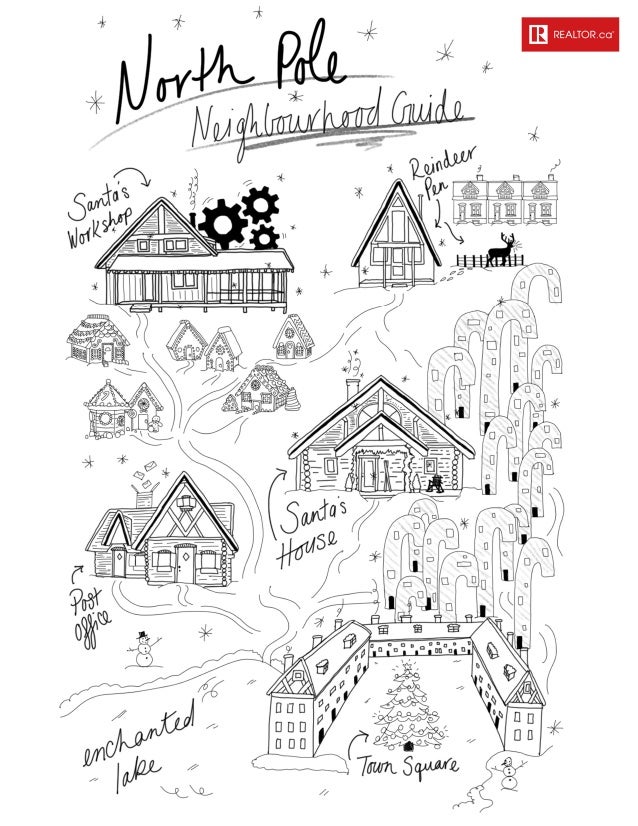 North Pole
Neighbourhood Guide
REALTOR.ca
Reindeer
Pen
Santa's
Workshop
Santa's
House
Post
Office
enchanted
lake
Town Square